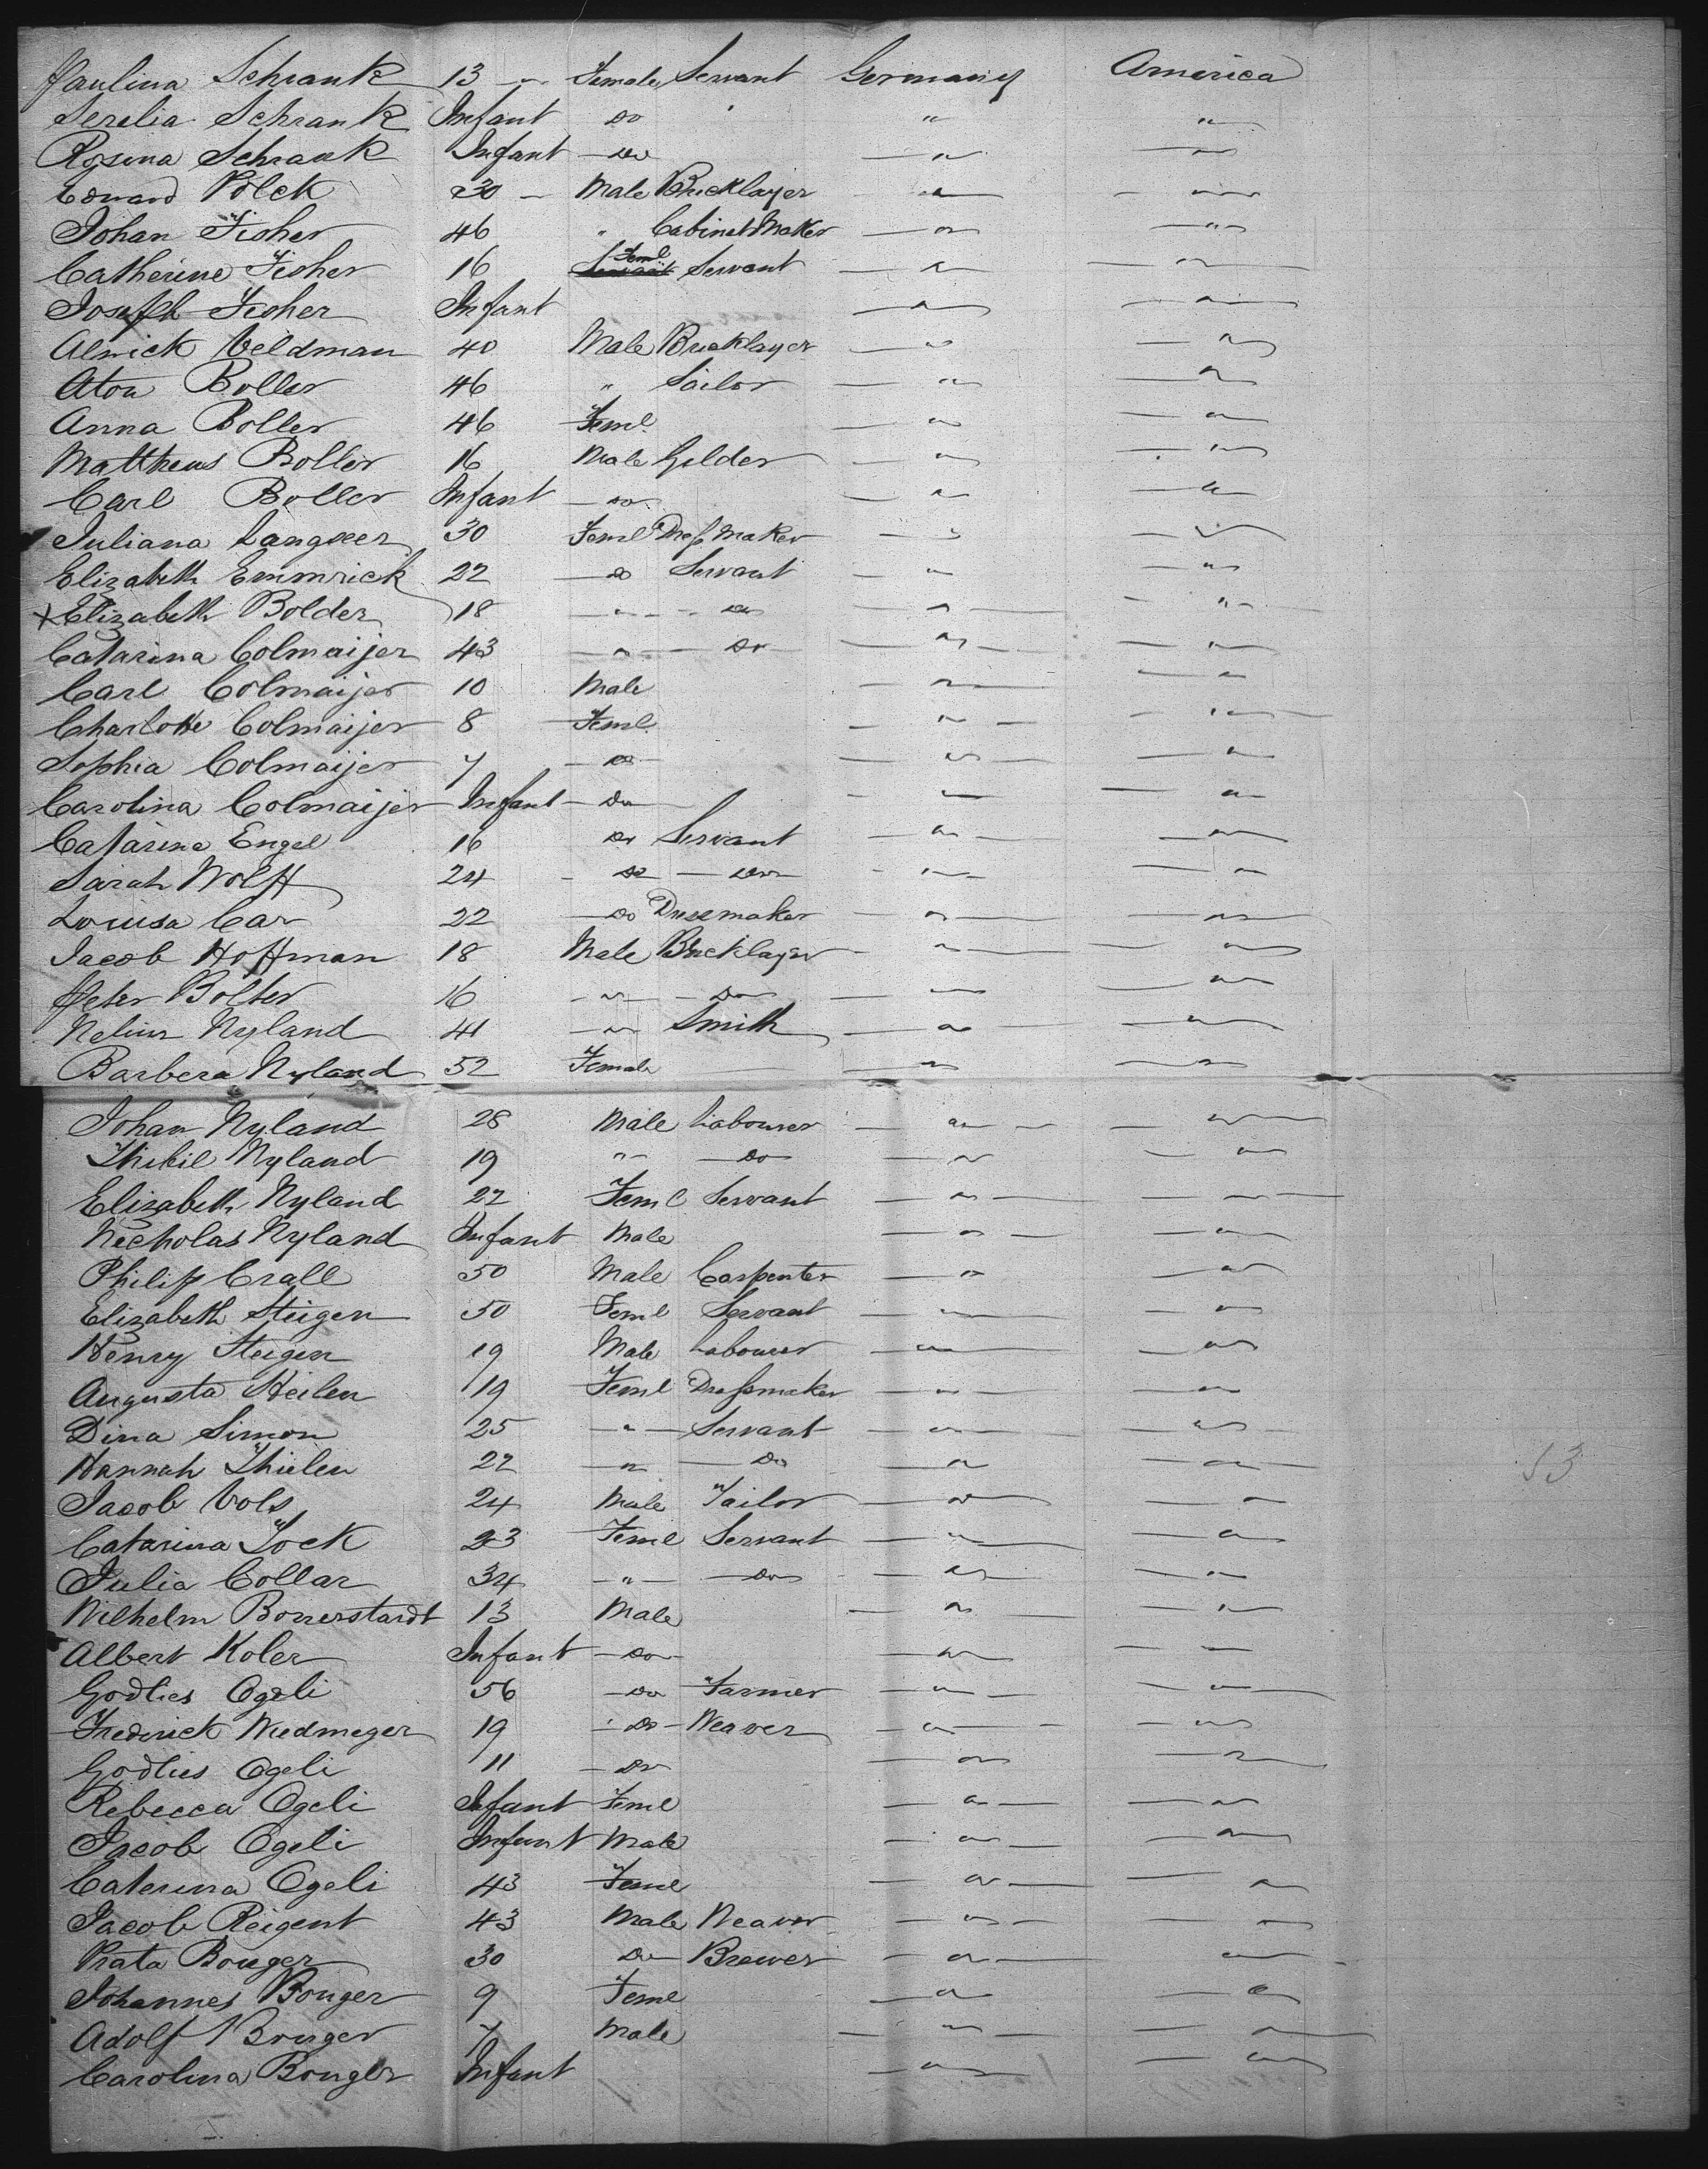 Paulina Schrank 13 " Female Servant Germany America
Serelia Schrank Infant Do " "
Rosina Schrank Infant Do " "
Edward Polck 30 Male Bricklayer " "
Johan Fisher 46 " Cabinet Maker " "
Catherine Fisher 16 Feml Servant " "
Joseph Fisher Infant " "
Alwick Veldman 40 Male Bricklayer " "
Aton Boller 46 " Sailor " "
Anna Boller 46 Feml " "
Mattheus Boller 16 Male Gilder " "
Carl Boller Infant do " "
Juliana Langxer 30 Feml Dressmaker " "
Elizabeth Emmrick 22 do Servant " "
x Elizabeth Bolder 18 " do " "
Catarina Colmaijer 43 " do " "
Carl Colmaijer 10 Male " "
Charlotte Colmaijer 8 Feml " "
Sophia Colmaijer 7 do " "
Carolina Colmaijer Infant Do " "
Catarina Engel 16 Do Servant " "
Sarah Wolff 24 do do " "
Louisa Car 22 do Dressmaker " "
Jacob Hoffman 18 Male Bricklayer " "
Peter Bolter 16 " Do " "
Nelius Nyland 41 " Smith " "
Barbera Nyland 52 Female " "
Johan Nyland 28 Male Labourer " "
Nyland 19 " Do " "
Elizabeth Nyland 22 Feml Servant " "
Nicholas Nyland Infant Male " "
Philip Crall 50 Male Carpenter " "
Elizabeth Steigen 50 Feml Servant " "
Henry Steigen 19 Male Labourer " "
Augusta Heilen 19 Feml Dressmaker " "
Dina Simon 25 " Servant " "
Hannah Thielen 22 " Do " "
Jacob Vols 24 Male Tailor " "
Catarina Jock 23 Feml Servant " "
Julia Collar 34 " Do " "
Wilhelm Bonerstardt 13 Male " "
Albert Koler Infant Do " "
Godlies Ogeli 56 Do Farmer " "
Frederick Wiedmeger 19 Do Weaver " "
Godlies Ogeli 11 Do " "
Rebecca Ogeli Infant Feml " "
Jacob Ogeli Infant Male " "
Caterina Ogeli 43 Feml " "
Jacob Reigent 43 Male Weaver " "
Krata Bouger 30 Do Brewer " "
Johannes Bouger 9 Feml " "
Adolf Bouger 7 Male " "
Carolina Bouger Infant " "
13